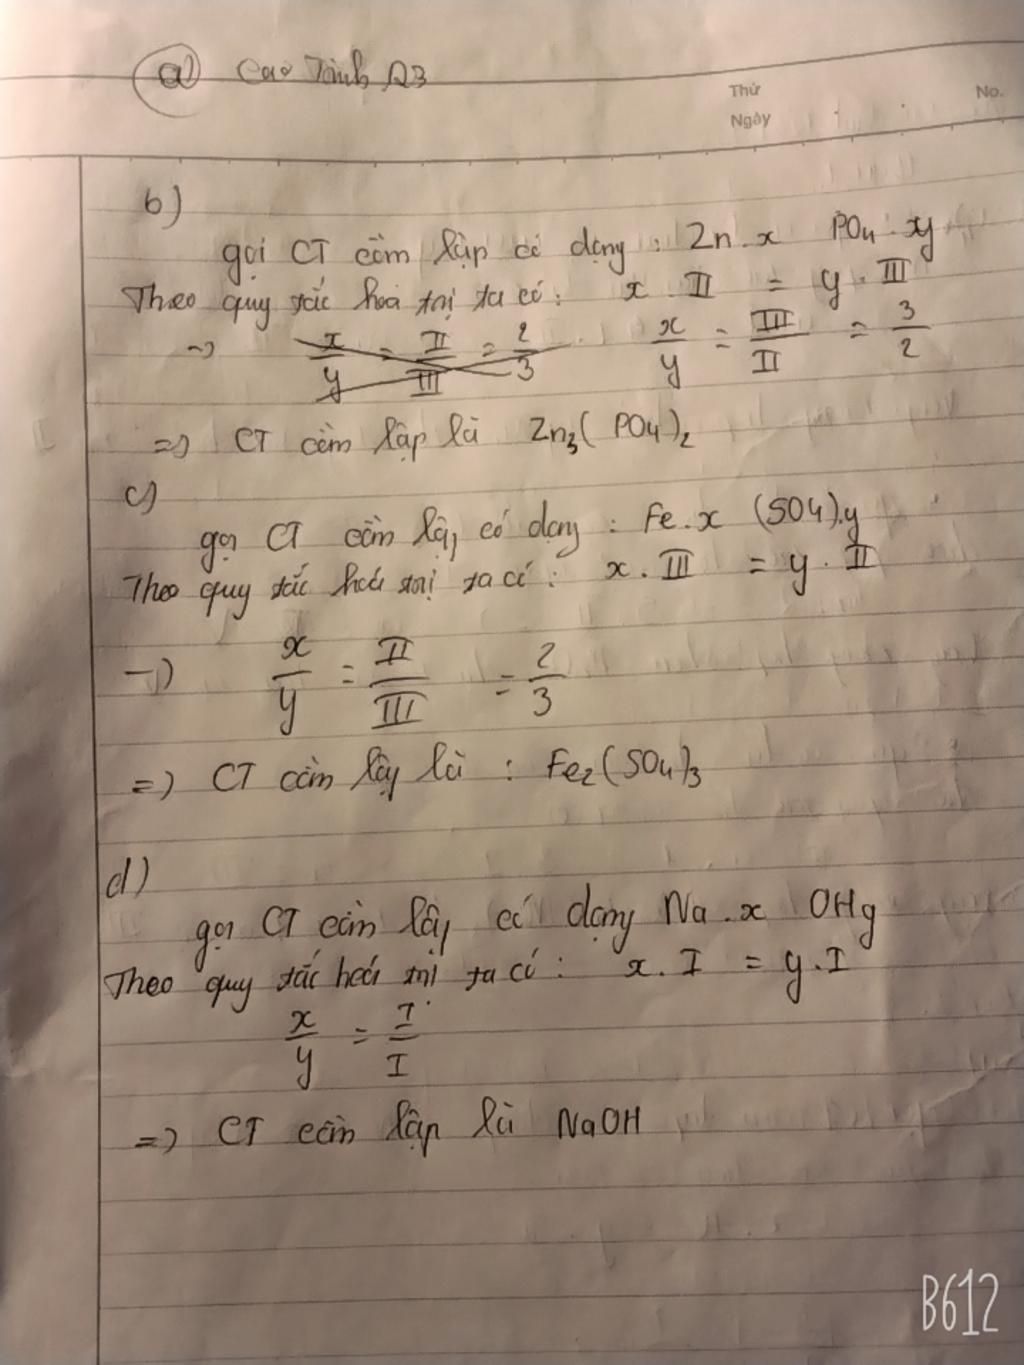 a)
Thứ
No.
Ngày
b)
gọi CT cần lập có dạng : Zn.x PO4.xy
Theo quy tắc hoá trị ta có : x . II = y . III
→ x/y = II/III = 2/3 x/y = III/II = 3/2
=> CT cần lập là Zn3(PO4)2
c)
gọi CT cần lập có dạng : Fe.x (SO4).y
Theo quy tắc hoá trị ta có : x . III = y . II
→ x/y = II/III = 2/3
=> CT cần lập là : Fe2(SO4)3
d)
gọi CT cần lập có dạng Na.x OHy
Theo quy tắc hoá trị ta có : x . I = y . I
x/y = I/I
=> CT cần lập là NaOH
B612